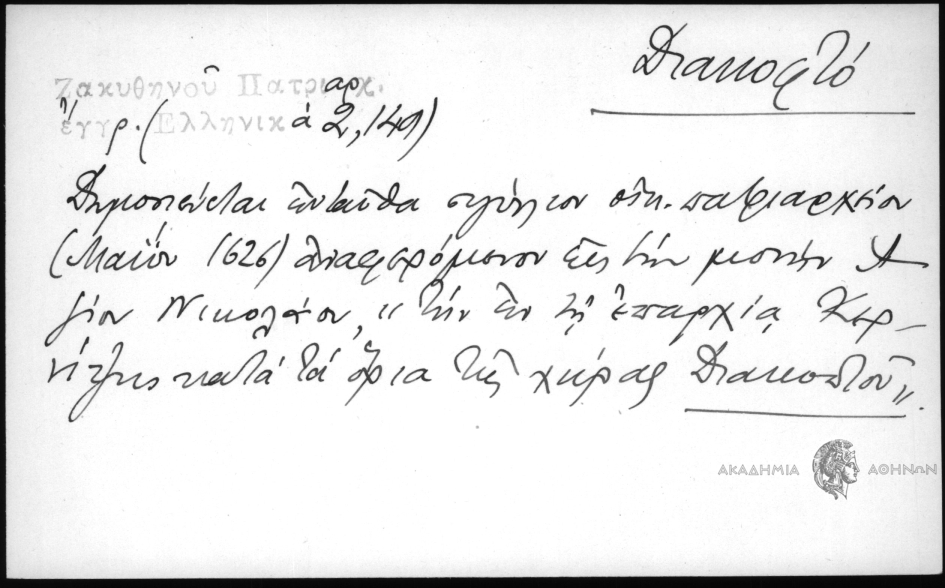 Διακοφτό
Ζακυθηνοῦ Πατριαρχ.
ἔγγρ. (Ἑλληνικά 2, 149)
Δημοσιεύεται ἐνταῦθα σιγίλλιον οἰκ. πατριαρχείου
(Μαΐου 1626) ἀναφερόμενον εἰς τὴν μονὴν Ἁ-
γίου Νικολάου, "τὴν ἐν τῇ ἐπαρχίᾳ Κερ-
νίτζης κατὰ τὰ ὅρια τῆς χώρας Διακοπτοῦ".
ΑΚΑΔΗΜΙΑ ΑΘΗΝΩΝ